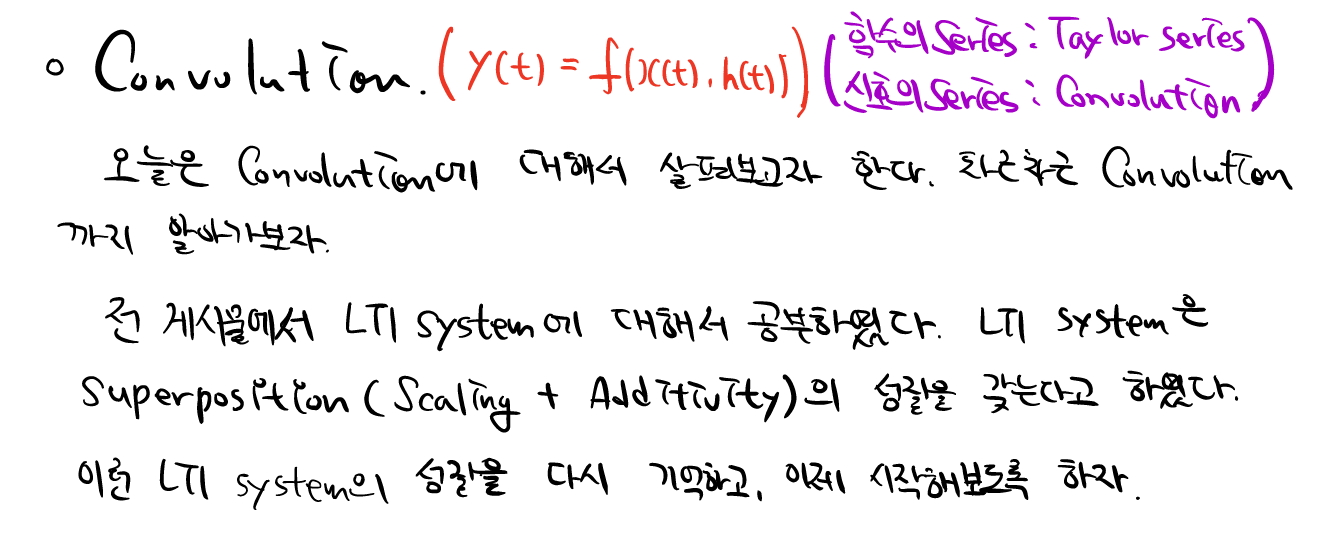 ○ Convolution. (y(t) = f(x(t), h(t))) (함수의 Series : Taylor series
신호의 Series : Convolution)
오늘은 Convolution에 대해서 살펴보고자 한다. 차근차근 Convolution
까지 알아가보자.
전 게시물에서 LTI system에 대해서 공부하였다. LTI system은
Superposition (Scaling + Additivity)의 성질을 갖는다고 하였다.
이런 LTI system의 성질을 다시 기억하고, 이제 시작해보도록 하자.